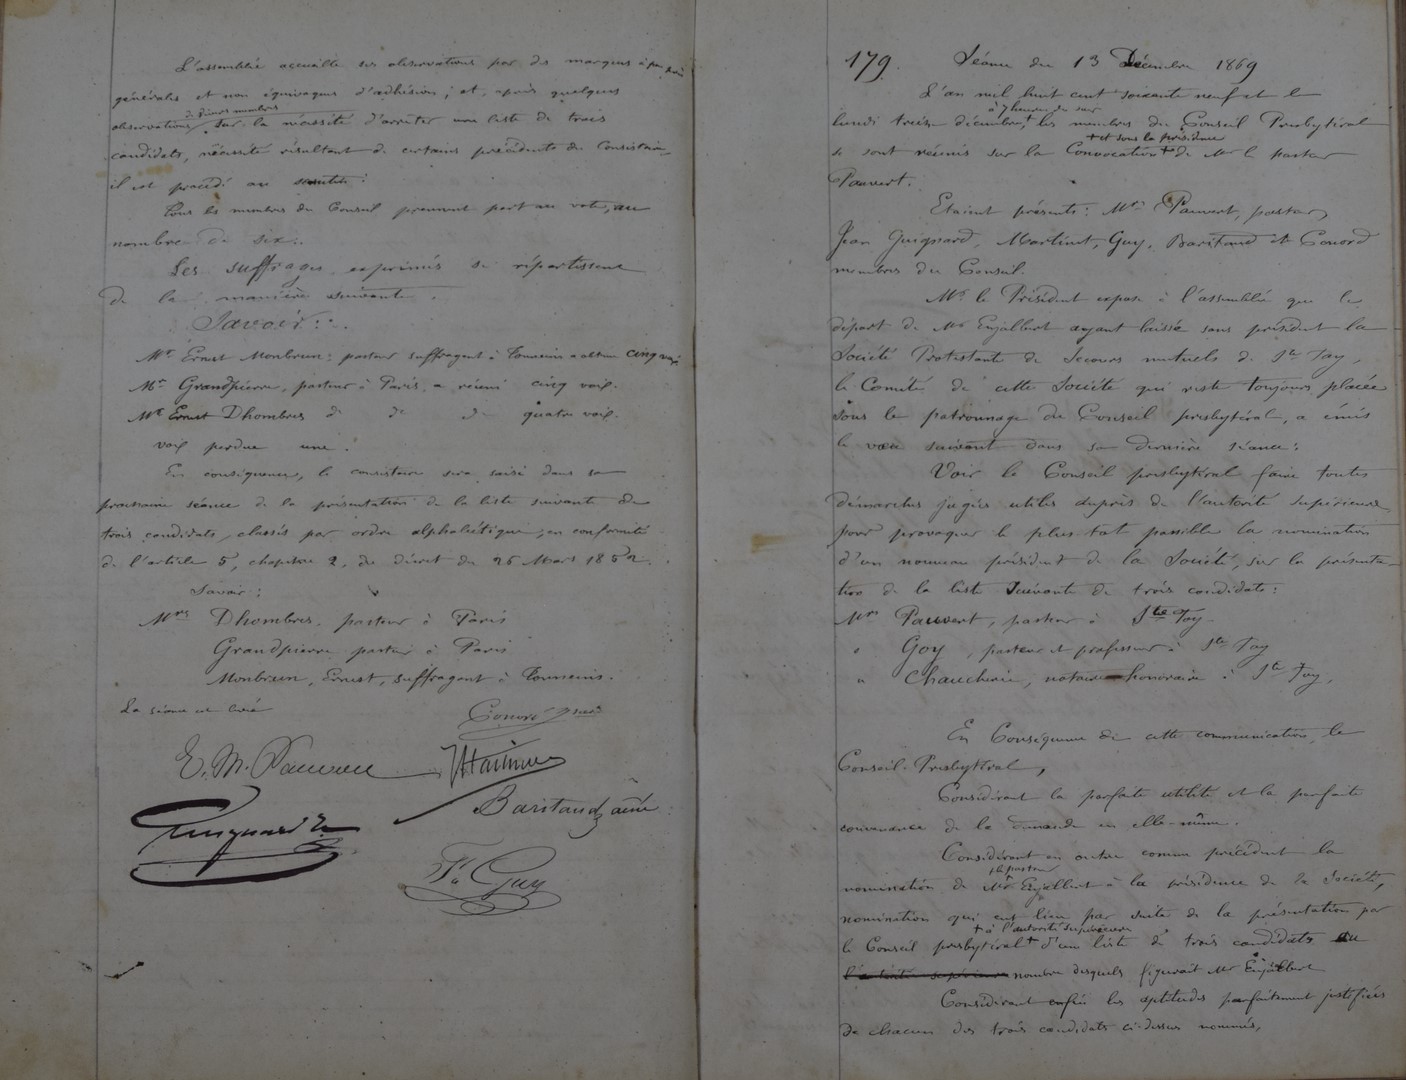 L'assemblée accueille ses observations par des marques à peu près
générales et non équivoques d'adhésion ; et, après quelques
de divers membres
observations sur la nécessité d'arrêter une liste de trois
candidats, nécessité résultant de certains précédents du Consistoire,
il est procédé au scrutin :
Tous les membres du Conseil prennent part au vote, au
nombre de six.
Les suffrages exprimés se répartissent
de la manière suivante.
Savoir :
Mr Ernest Monbrun, pasteur suffragant à Tonneins a obtenu cinq voix
Mr Grandpierre, pasteur à Paris, a réuni cinq voix.
Mr Ernest Dhombres d° d° d° quatre voix.
voix perdue une.
En conséquence, le consistoire sera saisi dans sa
prochaine séance de la présentation de la liste suivante de
trois candidats, classés par ordre alphabétique, en conformité
de l'article 5, chapitre 2, du décret du 26 Mars 1852.
Savoir :
Mrs Dhombres, pasteur à Paris
Grandpierre pasteur à Paris
Monbrun, Ernest, suffragant à Tonneins.
La séance est levée
Conord
E. M. Pauvert
Martinet
Baritaud aîné
Guignard Jn
Fs Guy
179. Séance du 13 Décembre 1869
L'an mil huit cent soixante neuf et le
à 7 heures du soir
lundi treize décembre, + les membres du Conseil Presbytéral
+ et sous la présidence
se sont réunis sur la Convocation + de Mr le pasteur
Pauvert.
Etaient présents : Mrs Pauvert, pasteur,
Jean Guignard, Martinet, Guy, Baritaud et Conord
membres du Conseil.
Mr le Président expose à l'assemblée que le
départ de Mr Enjalbert ayant laissé sans président la
Société Protestante de Secours mutuels de Ste Foy,
le Comité de cette Société qui reste toujours placée
sous le patronnage du Conseil presbytéral, a émis
le vœu suivant dans sa dernière séance :
Voir le Conseil presbytéral faire toutes
démarches jugées utiles auprès de l'autorité supérieure
pour provoquer le plus tôt possible la nomination
d'un nouveau président de la Société, sur la présenta-
tion de la liste suivante de trois candidats :
Mrs Pauvert, pasteur à Ste Foy.
" Goy, pasteur et professeur à Ste Foy
" Chaucherie, notaire honoraire à Ste Foy.
En Conséquence de cette communication, le
Conseil Presbytéral,
Considérant la parfaite utilité et la parfaite
convenance de la demande en elle-même.
Considérant en outre comme précédent la
le pasteur
nomination de Mr Enjalbert à la présidence de la Société,
nomination qui eut lieu par suite de la présentation par
+ à l'autorité supérieure
le Conseil presbytéral + d'une liste de trois candidats au
l'autorité supérieure nombre desquels figurait Mr Enjalbert
Considérant enfin les aptitudes parfaitement justifiées
de chacun des trois candidats ci-dessus nommés,